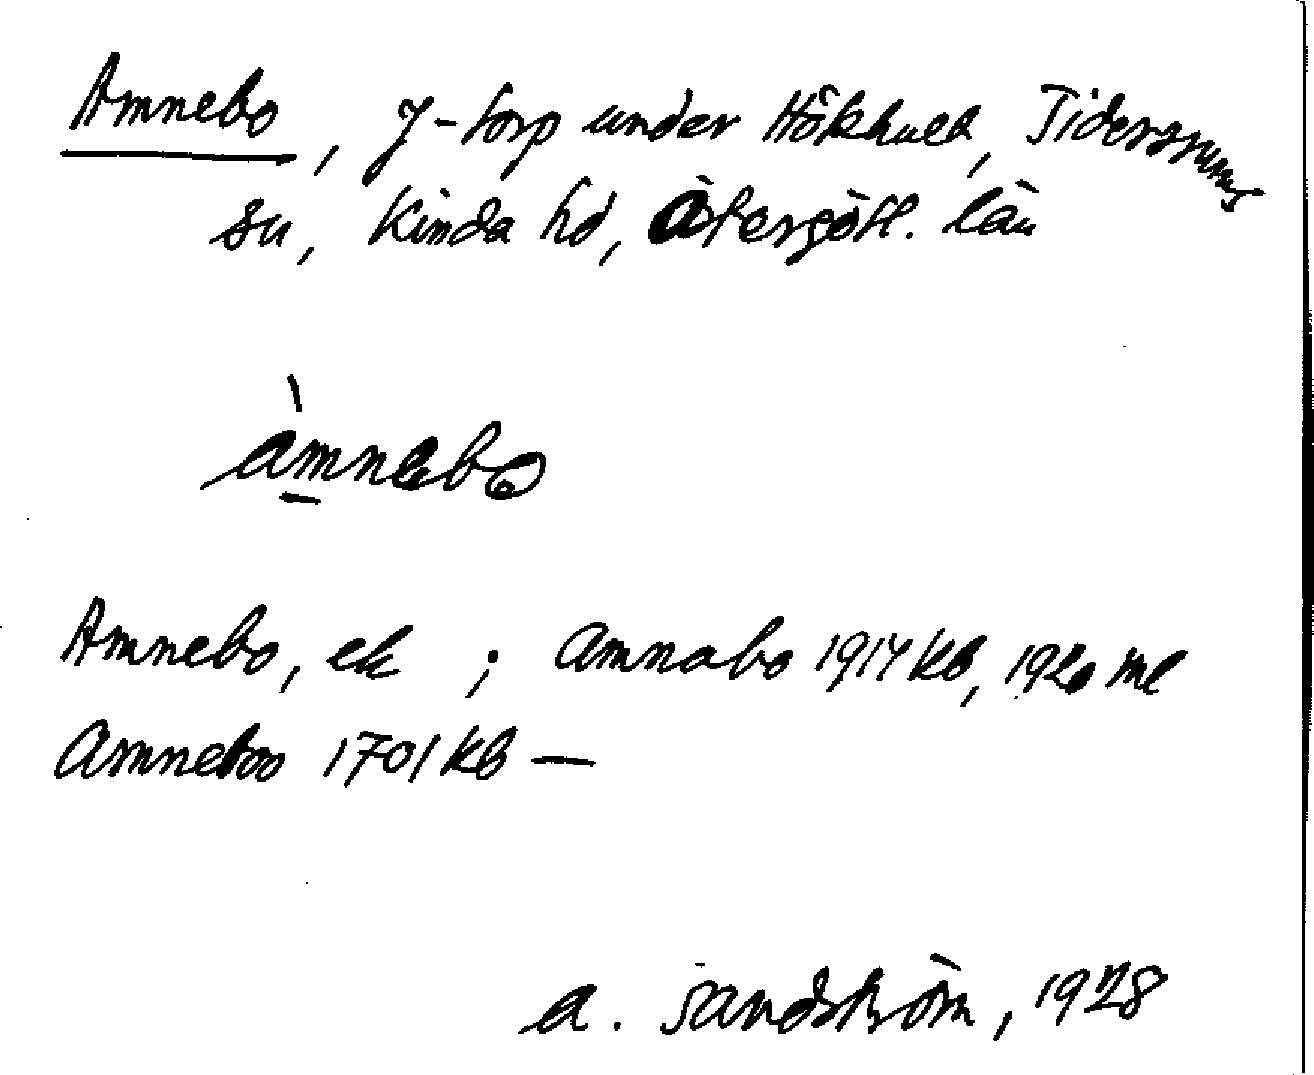 Amnebo, f-torp under Hökhult, Tidersrums
sn, Kinda hd, Östergötl. län
àmnebo
Amnebo, ek ; Amnabo 1914 kb, 1920 ml
Amneboo 1701 kb —
A. Sandström, 1928